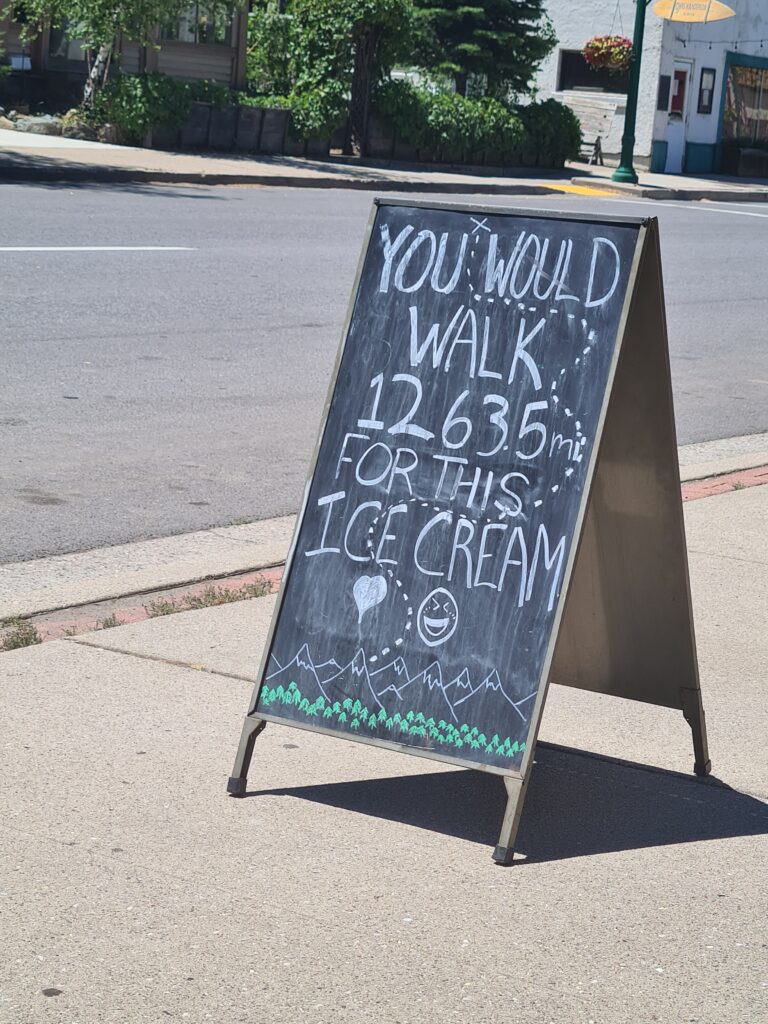 YOU WOULD
WALK
1263.5mi
FOR THIS
ICE CREAM